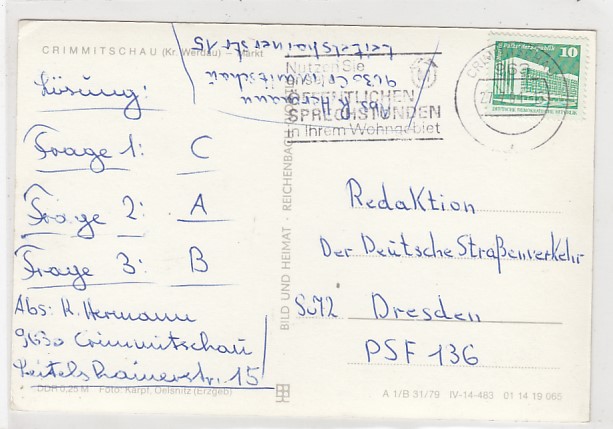 CRIMMITSCHAU (Kr. Werdau) – Markt
Abs. K. Hermann
9630 Crimmitschau
Leitelshainerstr 15
Nutzen Sie
ÖFFENTLICHEN
SPRECHSTUNDEN
in Ihrem Wohngebiet
10
Lösung:
Frage 1: C
Frage 2: A
Frage 3: B
Abs: K. Hermann
9630 Crimmitschau
Leitelshainerstr. 15
Redaktion
Der Deutsche Straßenverkehr
Dresden
PSF 136
BILD UND HEIMAT · REICHENBACH
DDR 0,25 M Foto: Karpf, Oelsnitz (Erzgeb)
A 1/B 31/79 IV-14-483 01 14 19 065